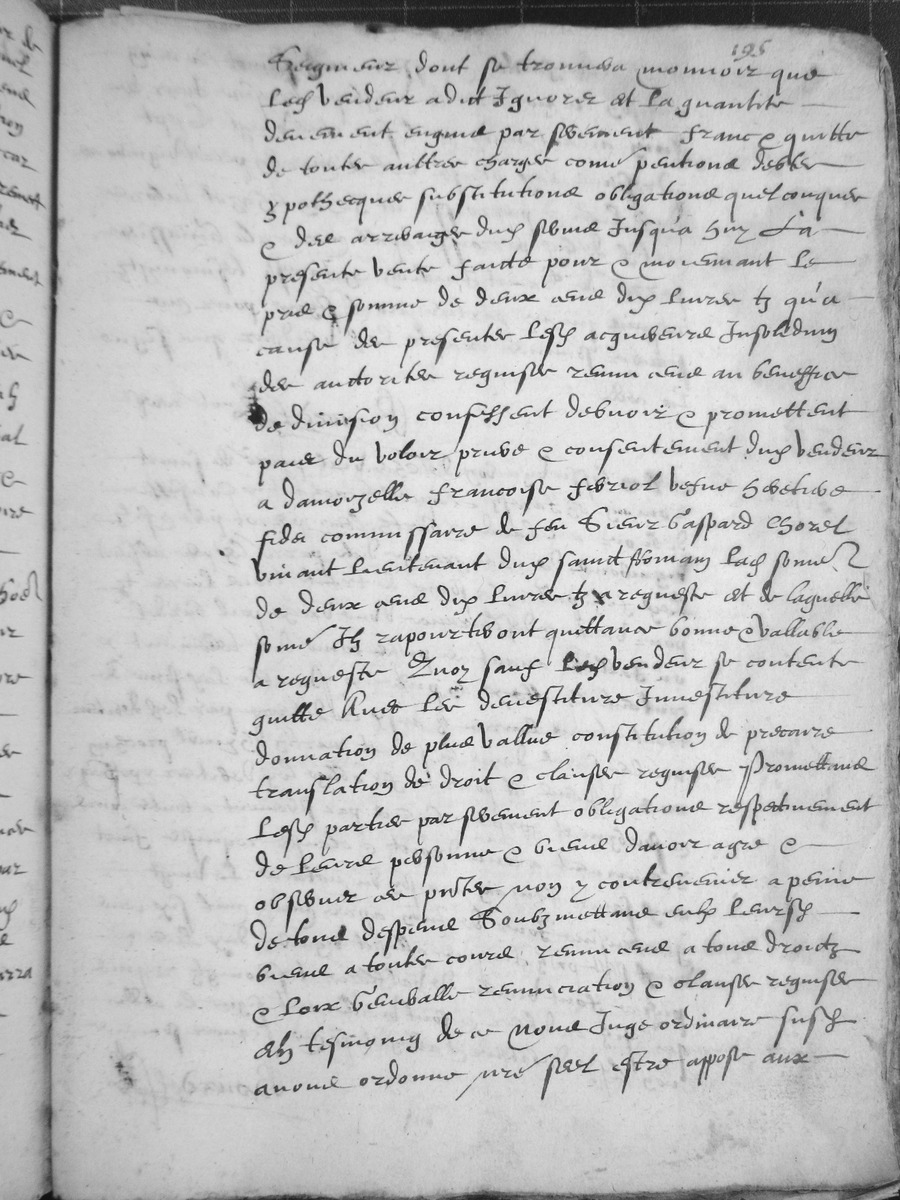 195
Seigneur dont se trouvera mouvoir que
led vendeur a dit Ignorer et la quantite
deuement enquis par serement franc & quitte
de toutes aultres charges come pentions debtes
ypothecques substitutions obligations quelconques
& des arreraiges dud servis Jusqua huy La
presente vente faicte pour & moiennant le
pris & somme de deux cens dix livres tz qua
cause des presentes lesd acquereurs Insolidum
des auctorites requises renunceans au beneffice
de division confessent debvoir & promettent
paier du voloir prinve & consentement dud vendeur
a damoyzelle francoise vefve heretiere
fidei commissaire de feu Sieur Gaspard Chorel
vivant lieutenant dud sainct Romain lad some
de deux cens dix livres tz a requeste et de laquelle
some Ilz rapourteront quittance bonne & vallable
a requeste Quoy sauf led vendeur se contente
quitte Avec les devestiture Investiture
donnation de plus vallue constitution de precaire
translation de droit & clauses requises Promettans
lesd parties par serement obligations respectivement
de leurs personnes & biens davoir agre &
observer ces pntes non y contrevenir a peine
de tous despens Soubzmettans enlz leursd
biens a toutes cours renunceans a tous droictz
& loix Generalle renunciation & clauses requises
En tesmoing de ce Nous Juge ordinaire susd
avons ordonne nre seel estre appose aux